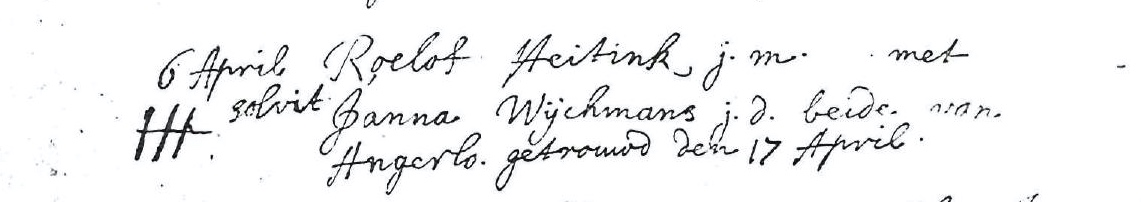 6 April Roelof Heitink j. m. met
solvit Janna Wijchmans j. d. beide van
Angerlo. getrouwd den 17 April.